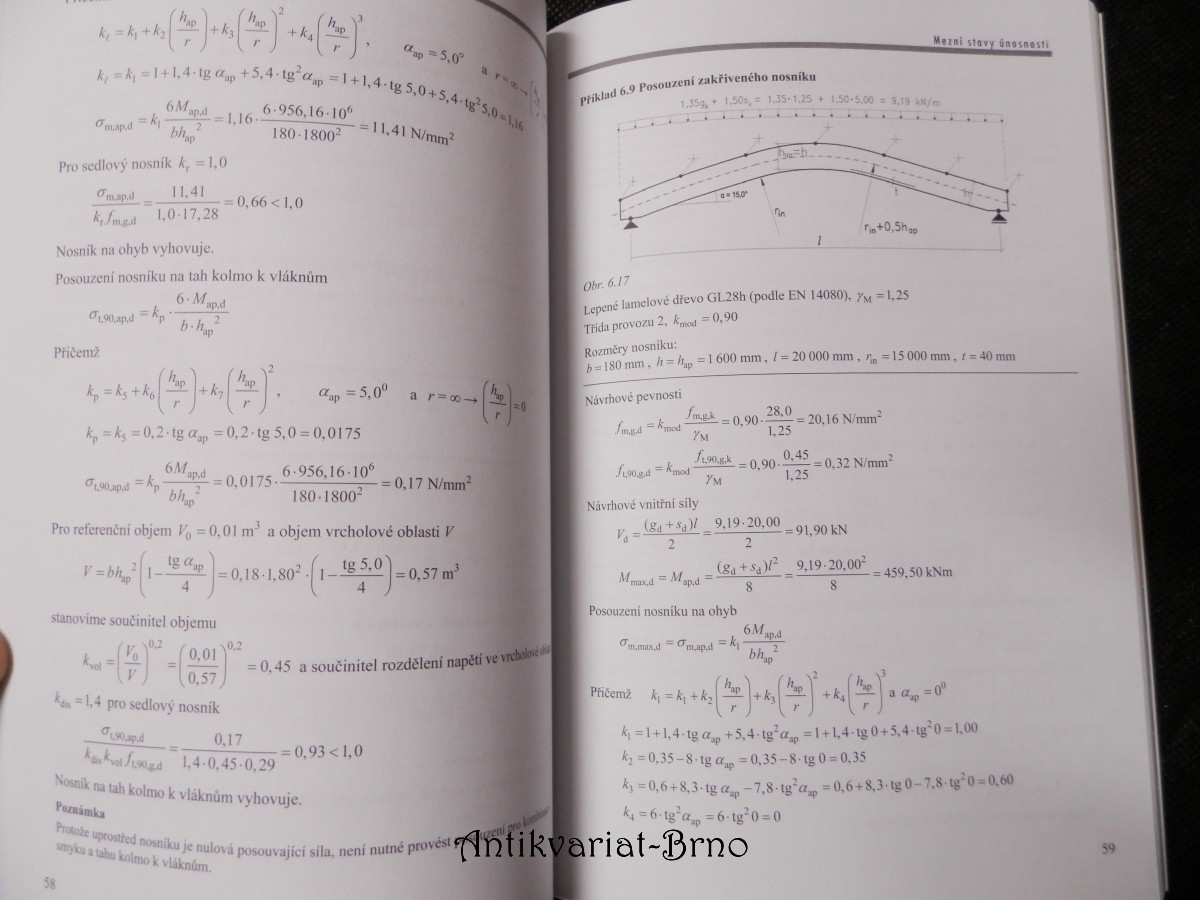 k_ℓ = k₁ + k₂ (h_ap / r) + k₃ (h_ap / r)² + k₄ (h_ap / r)³, α_ap = 5,0° a r = ∞ →
k_ℓ = k₁ = 1 + 1,4 · tg α_ap + 5,4 · tg² α_ap = 1 + 1,4 · tg 5,0 + 5,4 · tg² 5,0 = 1,16
σ_m,ap,d = k_l 6M_ap,d / bh_ap² = 1,16 · 6 · 956,16 · 10⁶ / 180 · 1800² = 11,41 N/mm²
Pro sedlový nosník k_r = 1,0
σ_m,ap,d / k_r f_m,g,d = 11,41 / 1,0 · 17,28 = 0,66 < 1,0
Nosník na ohyb vyhovuje.
Posouzení nosníku na tah kolmo k vláknům
σ_t,90,ap,d = k_p · 6 · M_ap,d / b · h_ap²
Přičemž
k_p = k₅ + k₆ (h_ap / r) + k₇ (h_ap / r)², α_ap = 5,0⁰ a r = ∞ → (h_ap / r) = 0
k_p = k₅ = 0,2 · tg α_ap = 0,2 · tg 5,0 = 0,0175
σ_t,90,ap,d = k_p 6M_ap,d / bh_ap² = 0,0175 · 6 · 956,16 · 10⁶ / 180 · 1800² = 0,17 N/mm²
Pro referenční objem V₀ = 0,01 m³ a objem vrcholové oblasti V
V = bh_ap² (1 − tg α_ap / 4) = 0,18 · 1,80² · (1 − tg 5,0 / 4) = 0,57 m³
stanovíme součinitel objemu
k_vol = (V₀ / V)^0,2 = (0,01 / 0,57)^0,2 = 0,45 a součinitel rozdělení napětí ve vrcholové
k_dis = 1,4 pro sedlový nosník
σ_t,90,ap,d / k_dis k_vol f_t,90,g,d = 0,17 / 1,4 · 0,45 · 0,29 = 0,93 < 1,0
Nosník na tah kolmo k vláknům vyhovuje.
Poznámka
Protože uprostřed nosníku je nulová posouvající síla, není nutné provést pro
smyku a tahu kolmo k vláknům.
58
Mezní stavy únosnosti
Příklad 6.9 Posouzení zakřiveného nosníku
1,35g_k + 1,50s_k = 1,35·1,25 + 1,50·5,00 = 9,19 kN/m
h_ap=h
h
α = 15,0°
r_in
t
r_in+0,5h_ap
l
Obr. 6.17
Lepené lamelové dřevo GL28h (podle EN 14080), γ_M = 1,25
Třída provozu 2, k_mod = 0,90
Rozměry nosníku:
b = 180 mm, h = h_ap = 1 600 mm, l = 20 000 mm, r_in = 15 000 mm, t = 40 mm
Návrhové pevnosti
f_m,g,d = k_mod f_m,g,k / γ_M = 0,90 · 28,0 / 1,25 = 20,16 N/mm²
f_t,90,g,d = k_mod f_t,90,g,k / γ_M = 0,90 · 0,45 / 1,25 = 0,32 N/mm²
Návrhové vnitřní síly
V_d = (g_d + s_d)l / 2 = 9,19 · 20,00 / 2 = 91,90 kN
M_max,d = M_ap,d = (g_d + s_d)l² / 8 = 9,19 · 20,00² / 8 = 459,50 kNm
Posouzení nosníku na ohyb
σ_m,max,d = σ_m,ap,d = k_l 6M_ap,d / bh_ap²
Přičemž k_l = k₁ + k₂ (h_ap / r) + k₃ (h_ap / r)² + k₄ (h_ap / r)³ a α_ap = 0⁰
k₁ = 1 + 1,4 · tg α_ap + 5,4 · tg² α_ap = 1 + 1,4 · tg 0 + 5,4 · tg² 0 = 1,00
k₂ = 0,35 − 8 · tg α_ap = 0,35 − 8 · tg 0 = 0,35
k₃ = 0,6 + 8,3 · tg α_ap − 7,8 · tg² α_ap = 0,6 + 8,3 · tg 0 − 7,8 · tg² 0 = 0,60
k₄ = 6 · tg² α_ap = 6 · tg² 0 = 0
59
Antikvariat-Brno